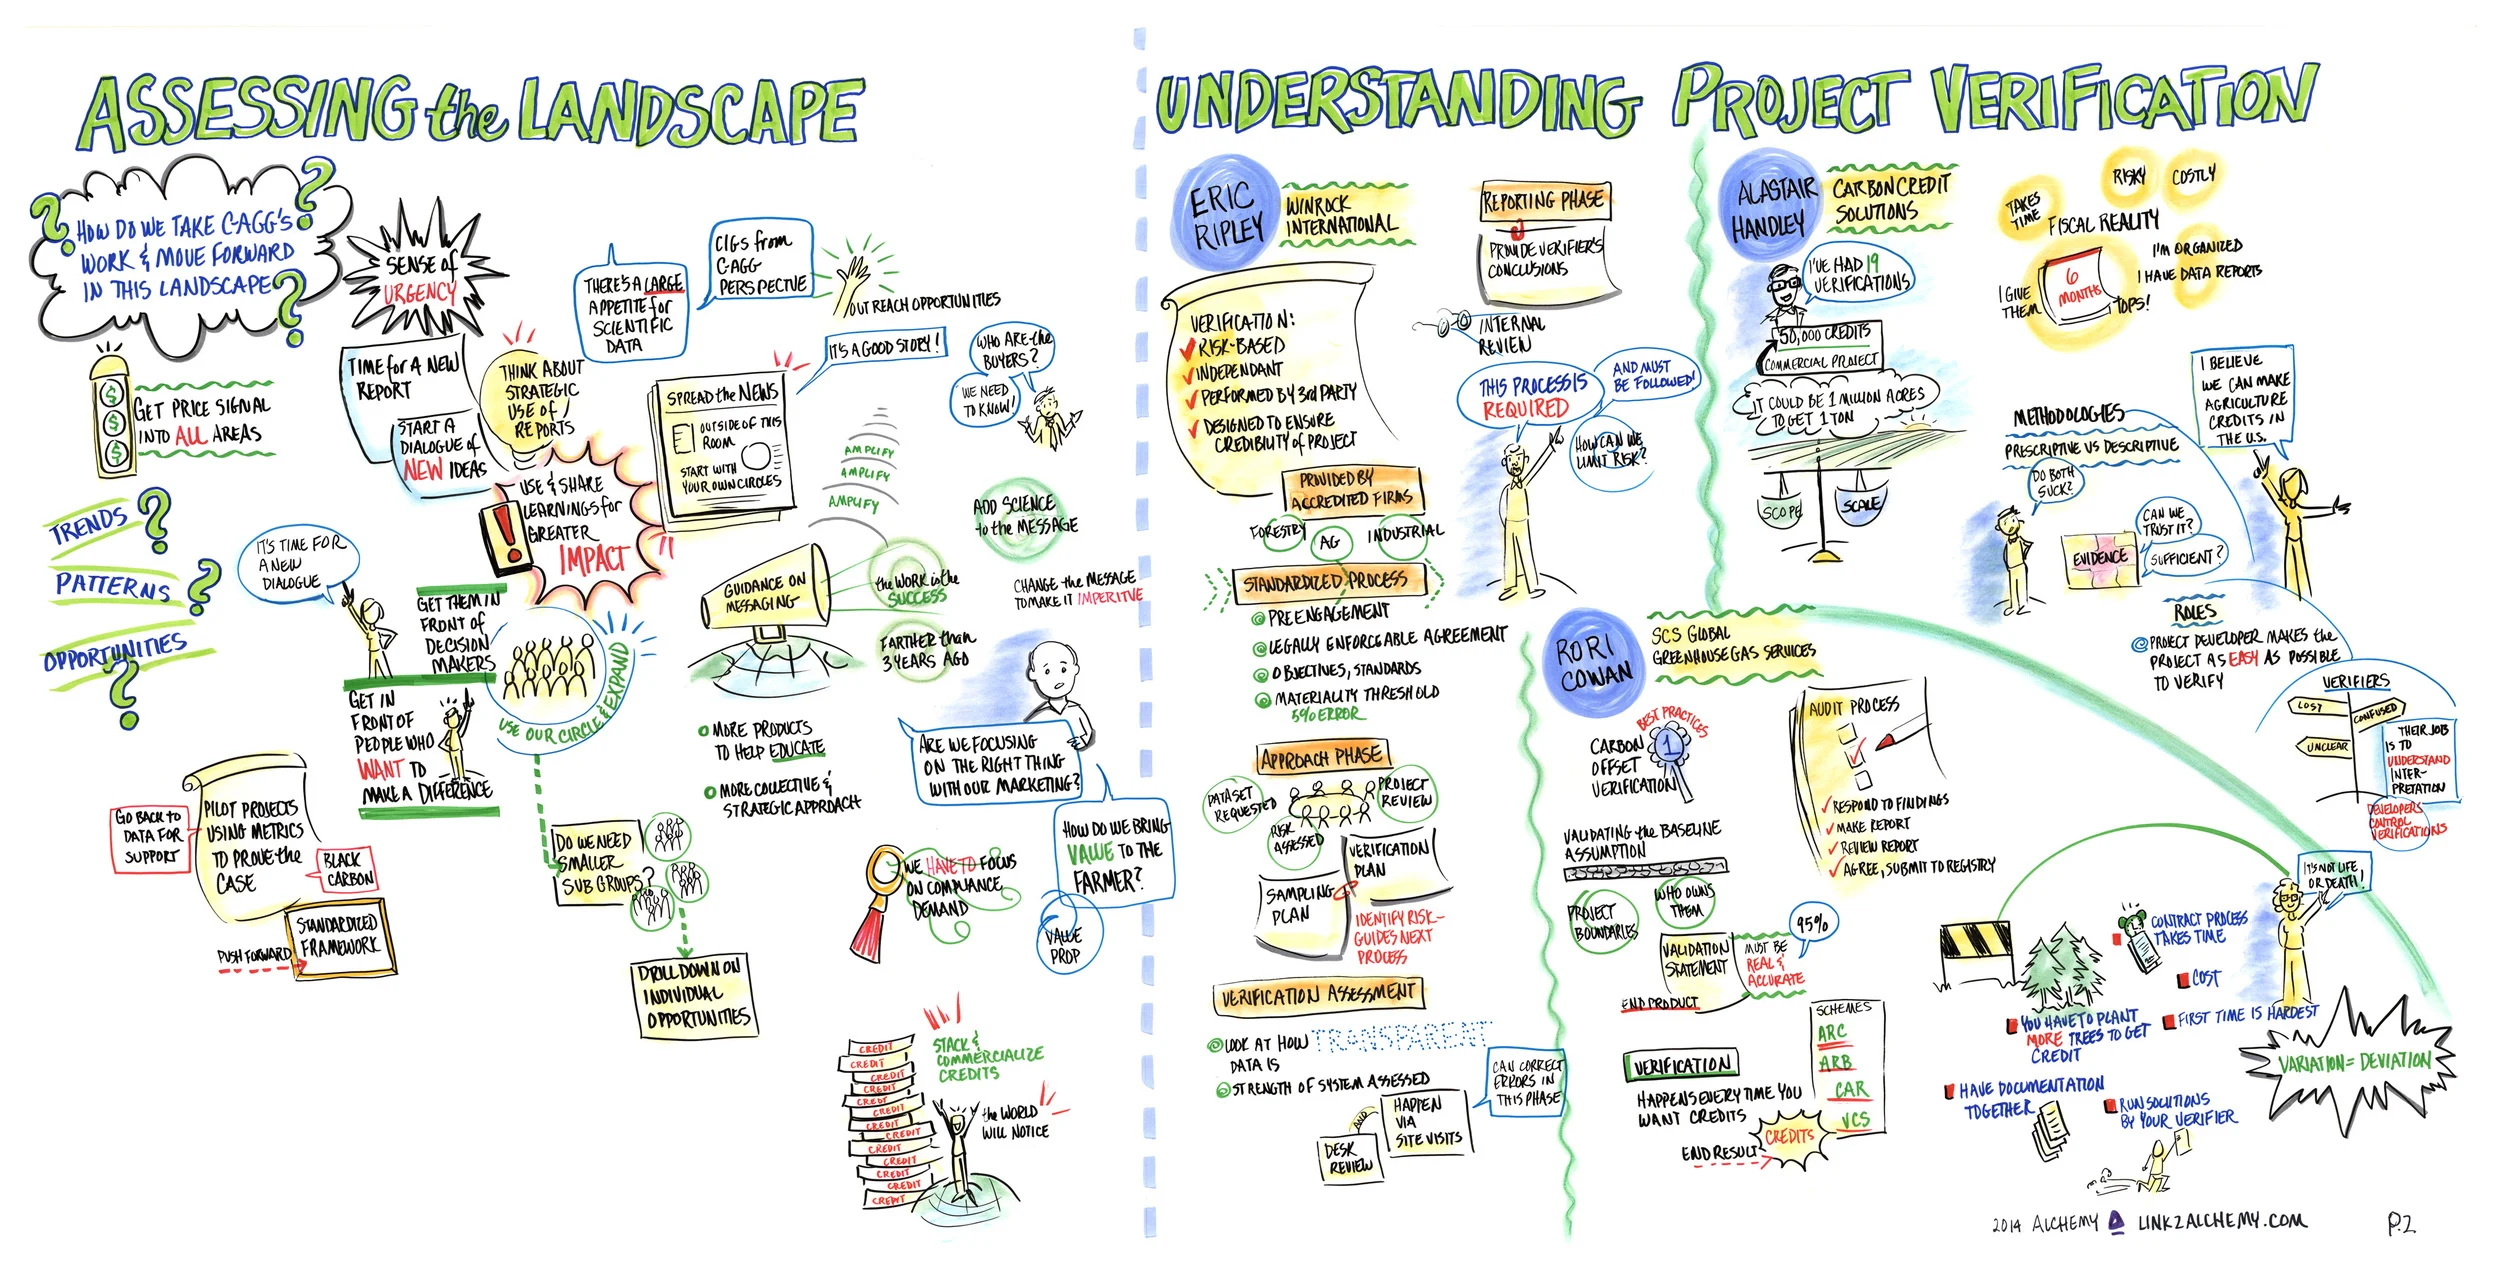 ASSESSING the LANDSCAPE
HOW DO WE TAKE C-AGG'S
WORK & MOVE FORWARD
IN THIS LANDSCAPE?
SENSE of
URGENCY
GET PRICE SIGNAL
INTO ALL AREAS
TRENDS?
PATTERNS?
OPPORTUNITIES?
TIME for A NEW
REPORT
START A
DIALOGUE of
NEW IDEAS
THINK ABOUT
STRATEGIC
USE of
REPORTS
USE & SHARE
LEARNINGS for
GREATER
IMPACT
THERE'S A LARGE
APPETITE for
SCIENTIFIC
DATA
CIGS from
C-AGG
PERSPECTIVE
OUTREACH OPPORTUNITIES
SPREAD the NEWS
OUTSIDE OF THIS
ROOM
START WITH
YOUR OWN CIRCLES
IT'S A GOOD STORY!
WHO ARE the
BUYERS?
WE NEED
TO KNOW!
AMPLIFY
AMPLIFY
AMPLIFY
ADD SCIENCE
to the MESSAGE
GUIDANCE ON
MESSAGING
the WORK is the
SUCCESS
FARTHER than
3 YEARS AGO
CHANGE the MESSAGE
TO MAKE IT IMPERITVE
IT'S TIME FOR
A NEW
DIALOGUE
GET THEM IN
FRONT OF
DECISION
MAKERS
GET IN
FRONT OF
PEOPLE WHO
WANT TO
MAKE A DIFFERENCE
USE OUR CIRCLE & EXPAND
MORE PRODUCTS
TO HELP EDUCATE
MORE COLLECTIVE &
STRATEGIC APPROACH
ARE WE FOCUSING
ON THE RIGHT THING
WITH OUR MARKETING?
HOW DO WE BRING
VALUE TO THE
FARMER?
VALUE
PROP
GO BACK TO
DATA FOR
SUPPORT
PILOT PROJECTS
USING METRICS
TO PROVE the
CASE
BLACK
CARBON
PUSH FORWARD
STANDARDIZED
FRAMEWORK
DO WE NEED
SMALLER
SUB GROUPS?
DRILL DOWN ON
INDIVIDUAL
OPPORTUNITIES
WE HAVE TO FOCUS
ON COMPLIANCE
DEMAND
CREDIT
CREDIT
CREDIT
CREDIT
CREDIT
CREDIT
CREDIT
CREDIT
CREDIT
CREDIT
CREDIT
CREDIT
STACK &
COMMERCIALIZE
CREDITS
the WORLD
WILL NOTICE
UNDERSTANDING PROJECT VERIFICATION
ERIC
RIPLEY
WINROCK
INTERNATIONAL
VERIFICATION:
RISK-BASED
INDEPENDANT
PERFORMED BY 3rd PARTY
DESIGNED TO ENSURE
CREDIBILITY of PROJECT
PROVIDED BY
ACCREDITED FIRMS
FORESTRY
AG
INDUSTRIAL
STANDARDIZED PROCESS
PRE ENGAGEMENT
LEGALLY ENFORCEABLE AGREEMENT
OBJECTIVES, STANDARDS
MATERIALITY THRESHOLD
5% ERROR
APPROACH PHASE
DATA SET
REQUESTED
RISK
ASSESSED
PROJECT
REVIEW
SAMPLING
PLAN
VERIFICATION
PLAN
IDENTIFY RISK-
GUIDES NEXT
PROCESS
VERIFICATION ASSESSMENT
LOOK AT HOW TRANSPARENT
DATA IS
STRENGTH OF SYSTEM ASSESSED
DESK
REVIEW
AND
HAPPEN
VIA
SITE VISITS
CAN CORRECT
ERRORS IN
THIS PHASE
REPORTING PHASE
PROVIDE VERIFIER'S
CONCLUSIONS
INTERNAL
REVIEW
THIS PROCESS IS
REQUIRED
AND MUST
BE FOLLOWED!
HOW CAN WE
LIMIT RISK?
RORI
COWAN
SCS GLOBAL
GREENHOUSE GAS SERVICES
CARBON
OFFSET
VERIFICATION
BEST PRACTICES
1
AUDIT PROCESS
RESPOND TO FINDINGS
MAKE REPORT
REVIEW REPORT
AGREE, SUBMIT TO REGISTRY
VALIDATING the BASELINE
ASSUMPTION
PROJECT
BOUNDARIES
WHO OWNS
THEM
VALIDATION
STATEMENT
END PRODUCT
MUST BE
REAL &
ACCURATE
95%
VERIFICATION
HAPPENS EVERY TIME YOU
WANT CREDITS
END RESULT
CREDITS
SCHEMES
ARC
ARB
CAR
VCS
ALASTAIR
HANDLEY
CARBON CREDIT
SOLUTIONS
I'VE HAD 19
VERIFICATIONS
50,000 CREDITS
COMMERCIAL PROJECT
IT COULD BE 1 MILLION ACRES
TO GET 1 TON
SCOPE
SCALE
TAKES
TIME
RISKY
COSTLY
FISCAL REALITY
I'M ORGANIZED
I HAVE DATA REPORTS
I GIVE
THEM
6
MONTHS
TOPS!
METHODOLOGIES
PRESCRIPTIVE VS DESCRIPTIVE
DO BOTH
SUCK?
EVIDENCE
CAN WE
TRUST IT?
SUFFICIENT?
I BELIEVE
WE CAN MAKE
AGRICULTURE
CREDITS IN
THE U.S.
ROLES
PROJECT DEVELOPER MAKES the
PROJECT AS EASY AS POSSIBLE
TO VERIFY
VERIFIERS
LOST
CONFUSED
UNCLEAR
THEIR JOB
IS TO
UNDERSTAND
INTER-
PRETATION
DEVELOPERS
CONTROL
VERIFICATIONS
IT'S NOT LIFE
OR DEATH!
CONTRACT PROCESS
TAKES TIME
COST
FIRST TIME IS HARDEST
YOU HAVE TO PLANT
MORE TREES TO GET
CREDIT
HAVE DOCUMENTATION
TOGETHER
RUN SOLUTIONS
BY YOUR VERIFIER
VARIATION = DEVIATION
2014 ALCHEMY LINK2ALCHEMY.COM
P.2